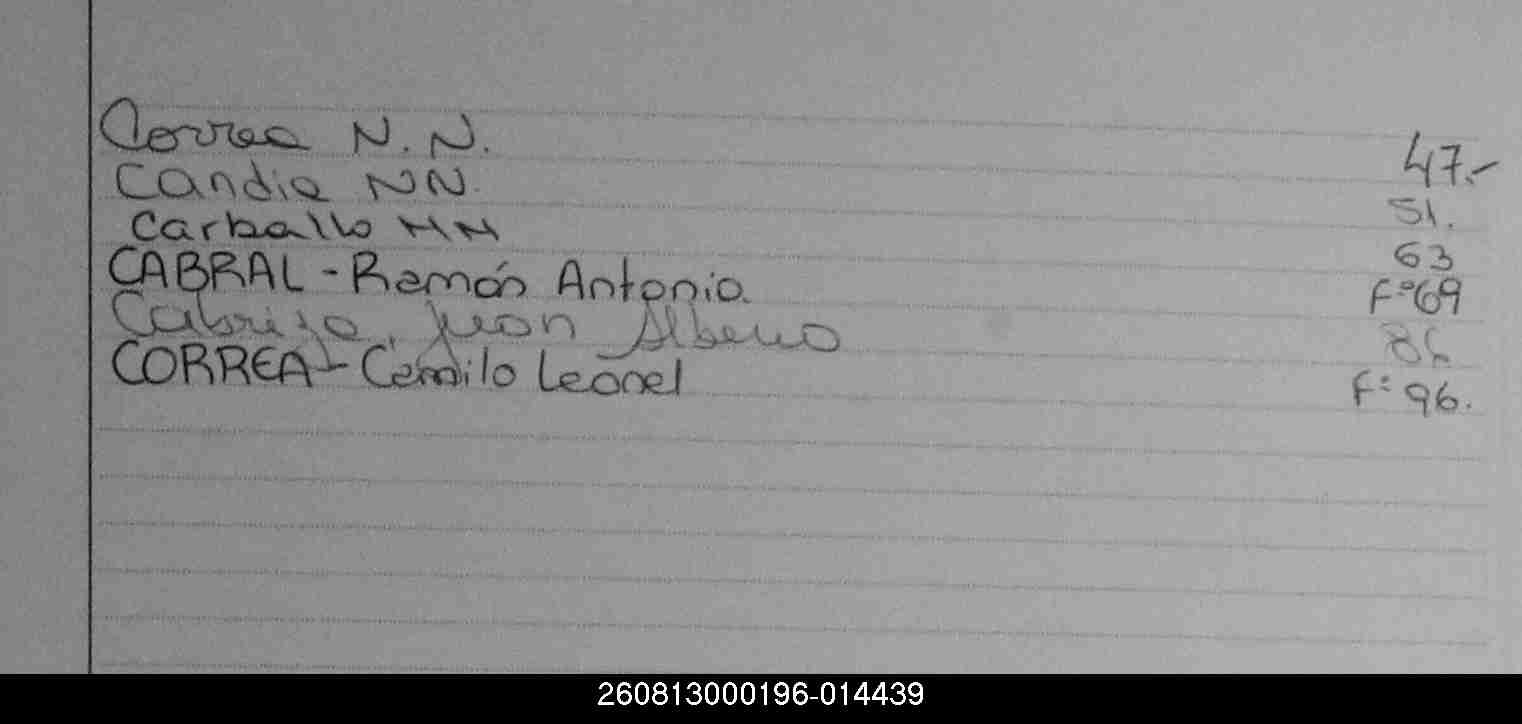 Correa N.N. 47.-
Candia NN. 51.
Carballo NN 63
CABRAL - Ramón Antonio. Fº69
Juan Alberto
CORREA - Camilo Leonel Fº 96.
260813000196-014439